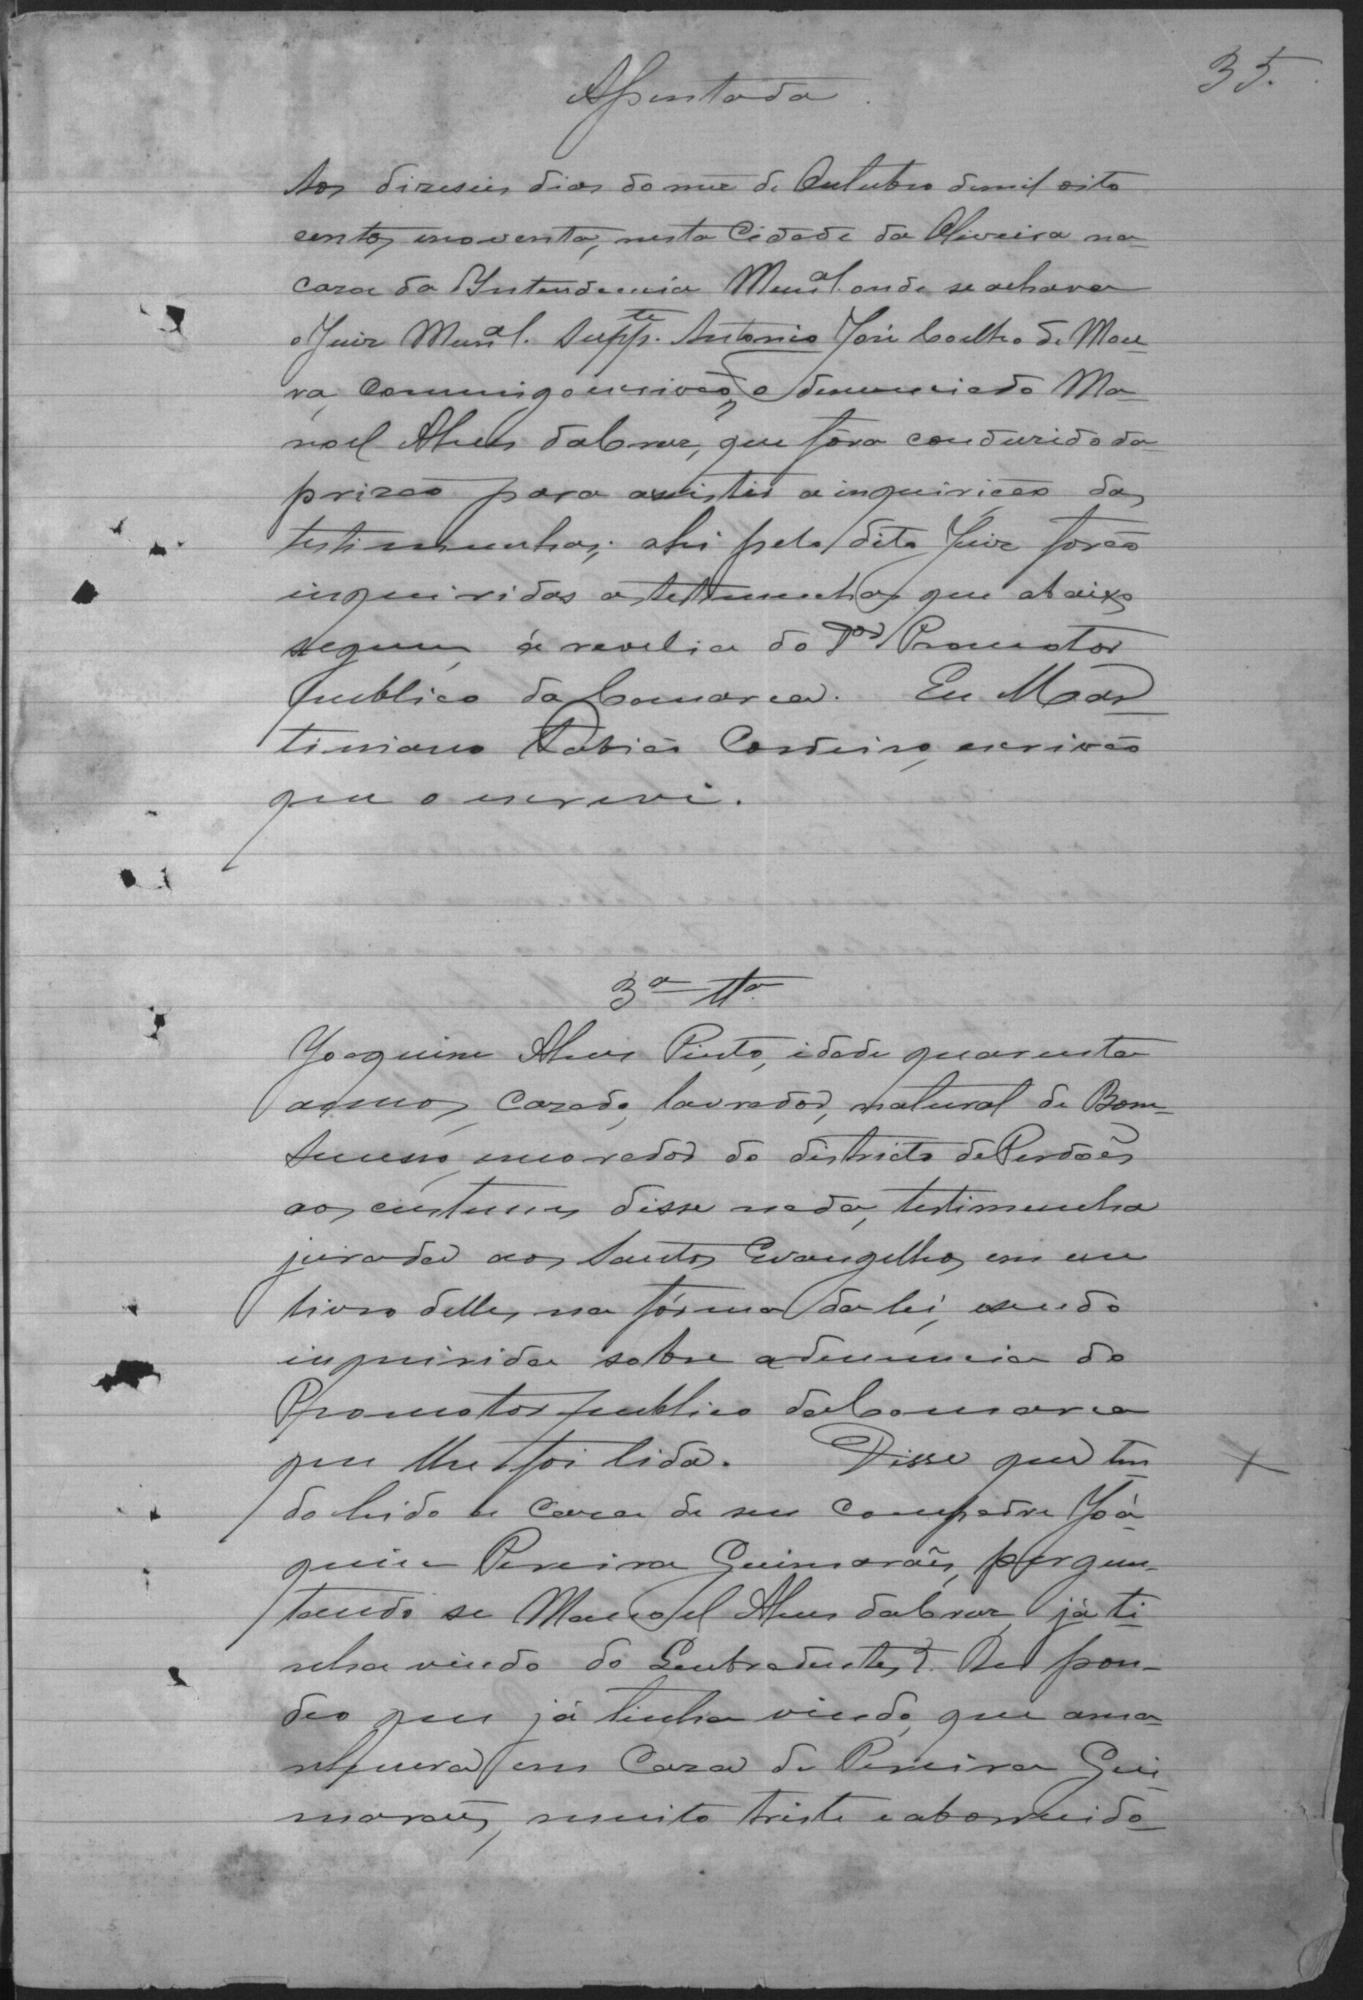 35.
Assentada.
Aos diseseis dias do mez de Outubro de mil oito
centos e noventa, nesta Cidade da Oliveira na
caza da Intendencia Mun.al onde se achava
o Juiz Mun.al Supp.te Antonio José Coelho de Mou-
ra, commigo escrivão, o denunciado Ma-
noel Alves da Cruz, que fôra conduzido da
prizão para assistir a inquirição das
testimunhas; ahi pelo dito Juiz forão
inquiridas as testimunhas que abaixo
seguem, á revelia do Promotor
publico da Comarca. Eu Mar-
timiano Tobias Cordeiro, escrivão
que o escrevi.
3a tta
Joaquim Alves Pinto, idade quarenta
annos, cazado, lavrador, natural de Bom-
Sucesso, morador do districto de Perdões
aos custumes disse nada, testimunha
jurada aos Santos Evangelhos em um
livro delles, na fórma da lei, e sendo
inquirida sobre a denuncia do
Promotor publico da Comarca
que lhe foi lida. Disse que ten
do hido a caza de seu compadre Joa-
quim Pereira Guimarães, pergun-
tando se Manoel Alves da Cruz já ti-
nha vindo do Respon-
deo que já tinha vindo, que ama-
nhecera em Caza de Pereira Gui-
marães, muito triste e aborrecido